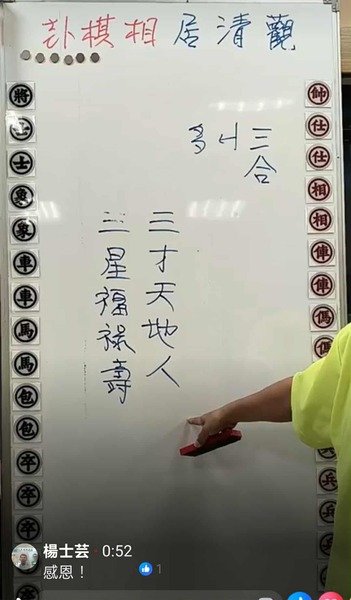 觀清居相棋卦
帥
仕
仕
相
相
俥
俥
傌
傌
兵
兵
兵
三合
多
三才天地人
三星福祿壽
將
士
士
象
象
車
車
馬
馬
包
包
卒
卒
卒
楊士芸 · 0:52
感恩！
1